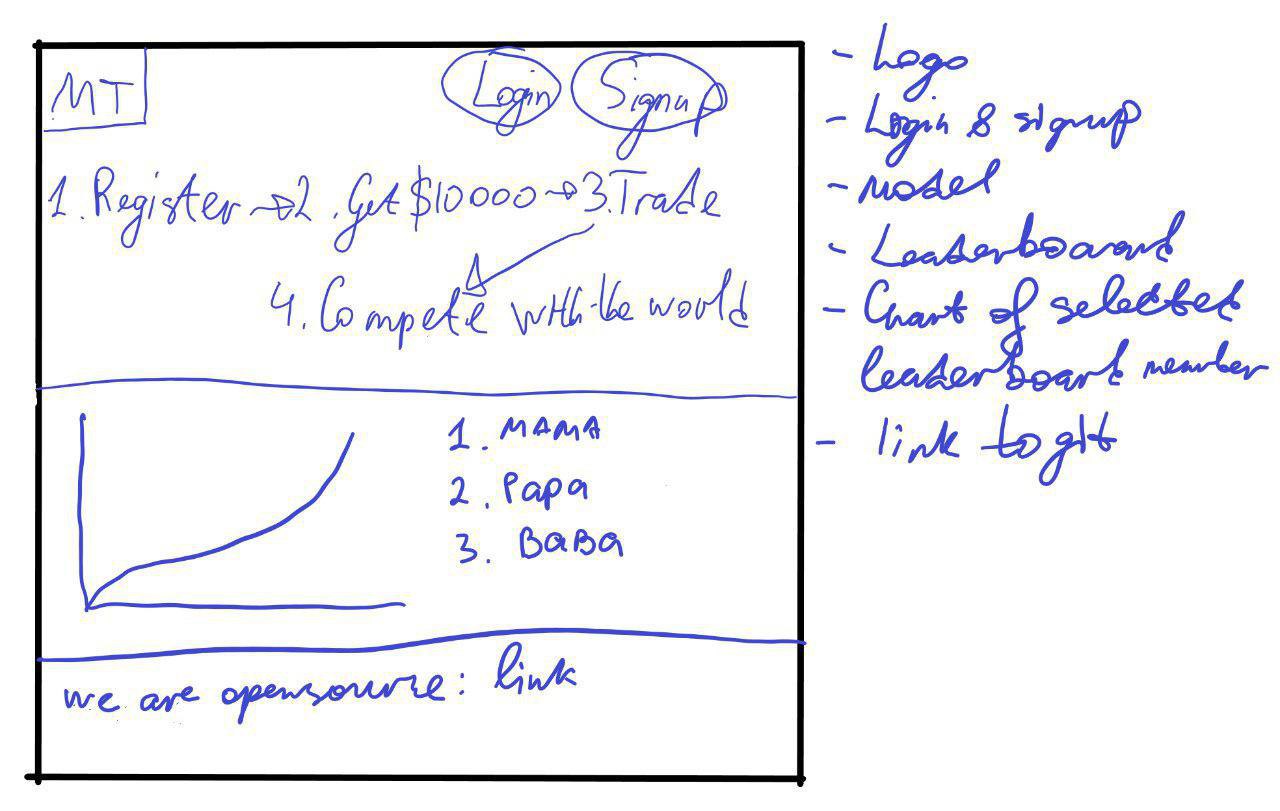 MT
Login Signup
1. Register → 2. Get $10000 → 3. Trade
4. Compete with the world
1. MAMA
2. Papa
3. BaBa
we are opensource: link
- Logo
- Login & signup
- model
- Leaderboard
- Chart of selected
leaderboard member
- link to git